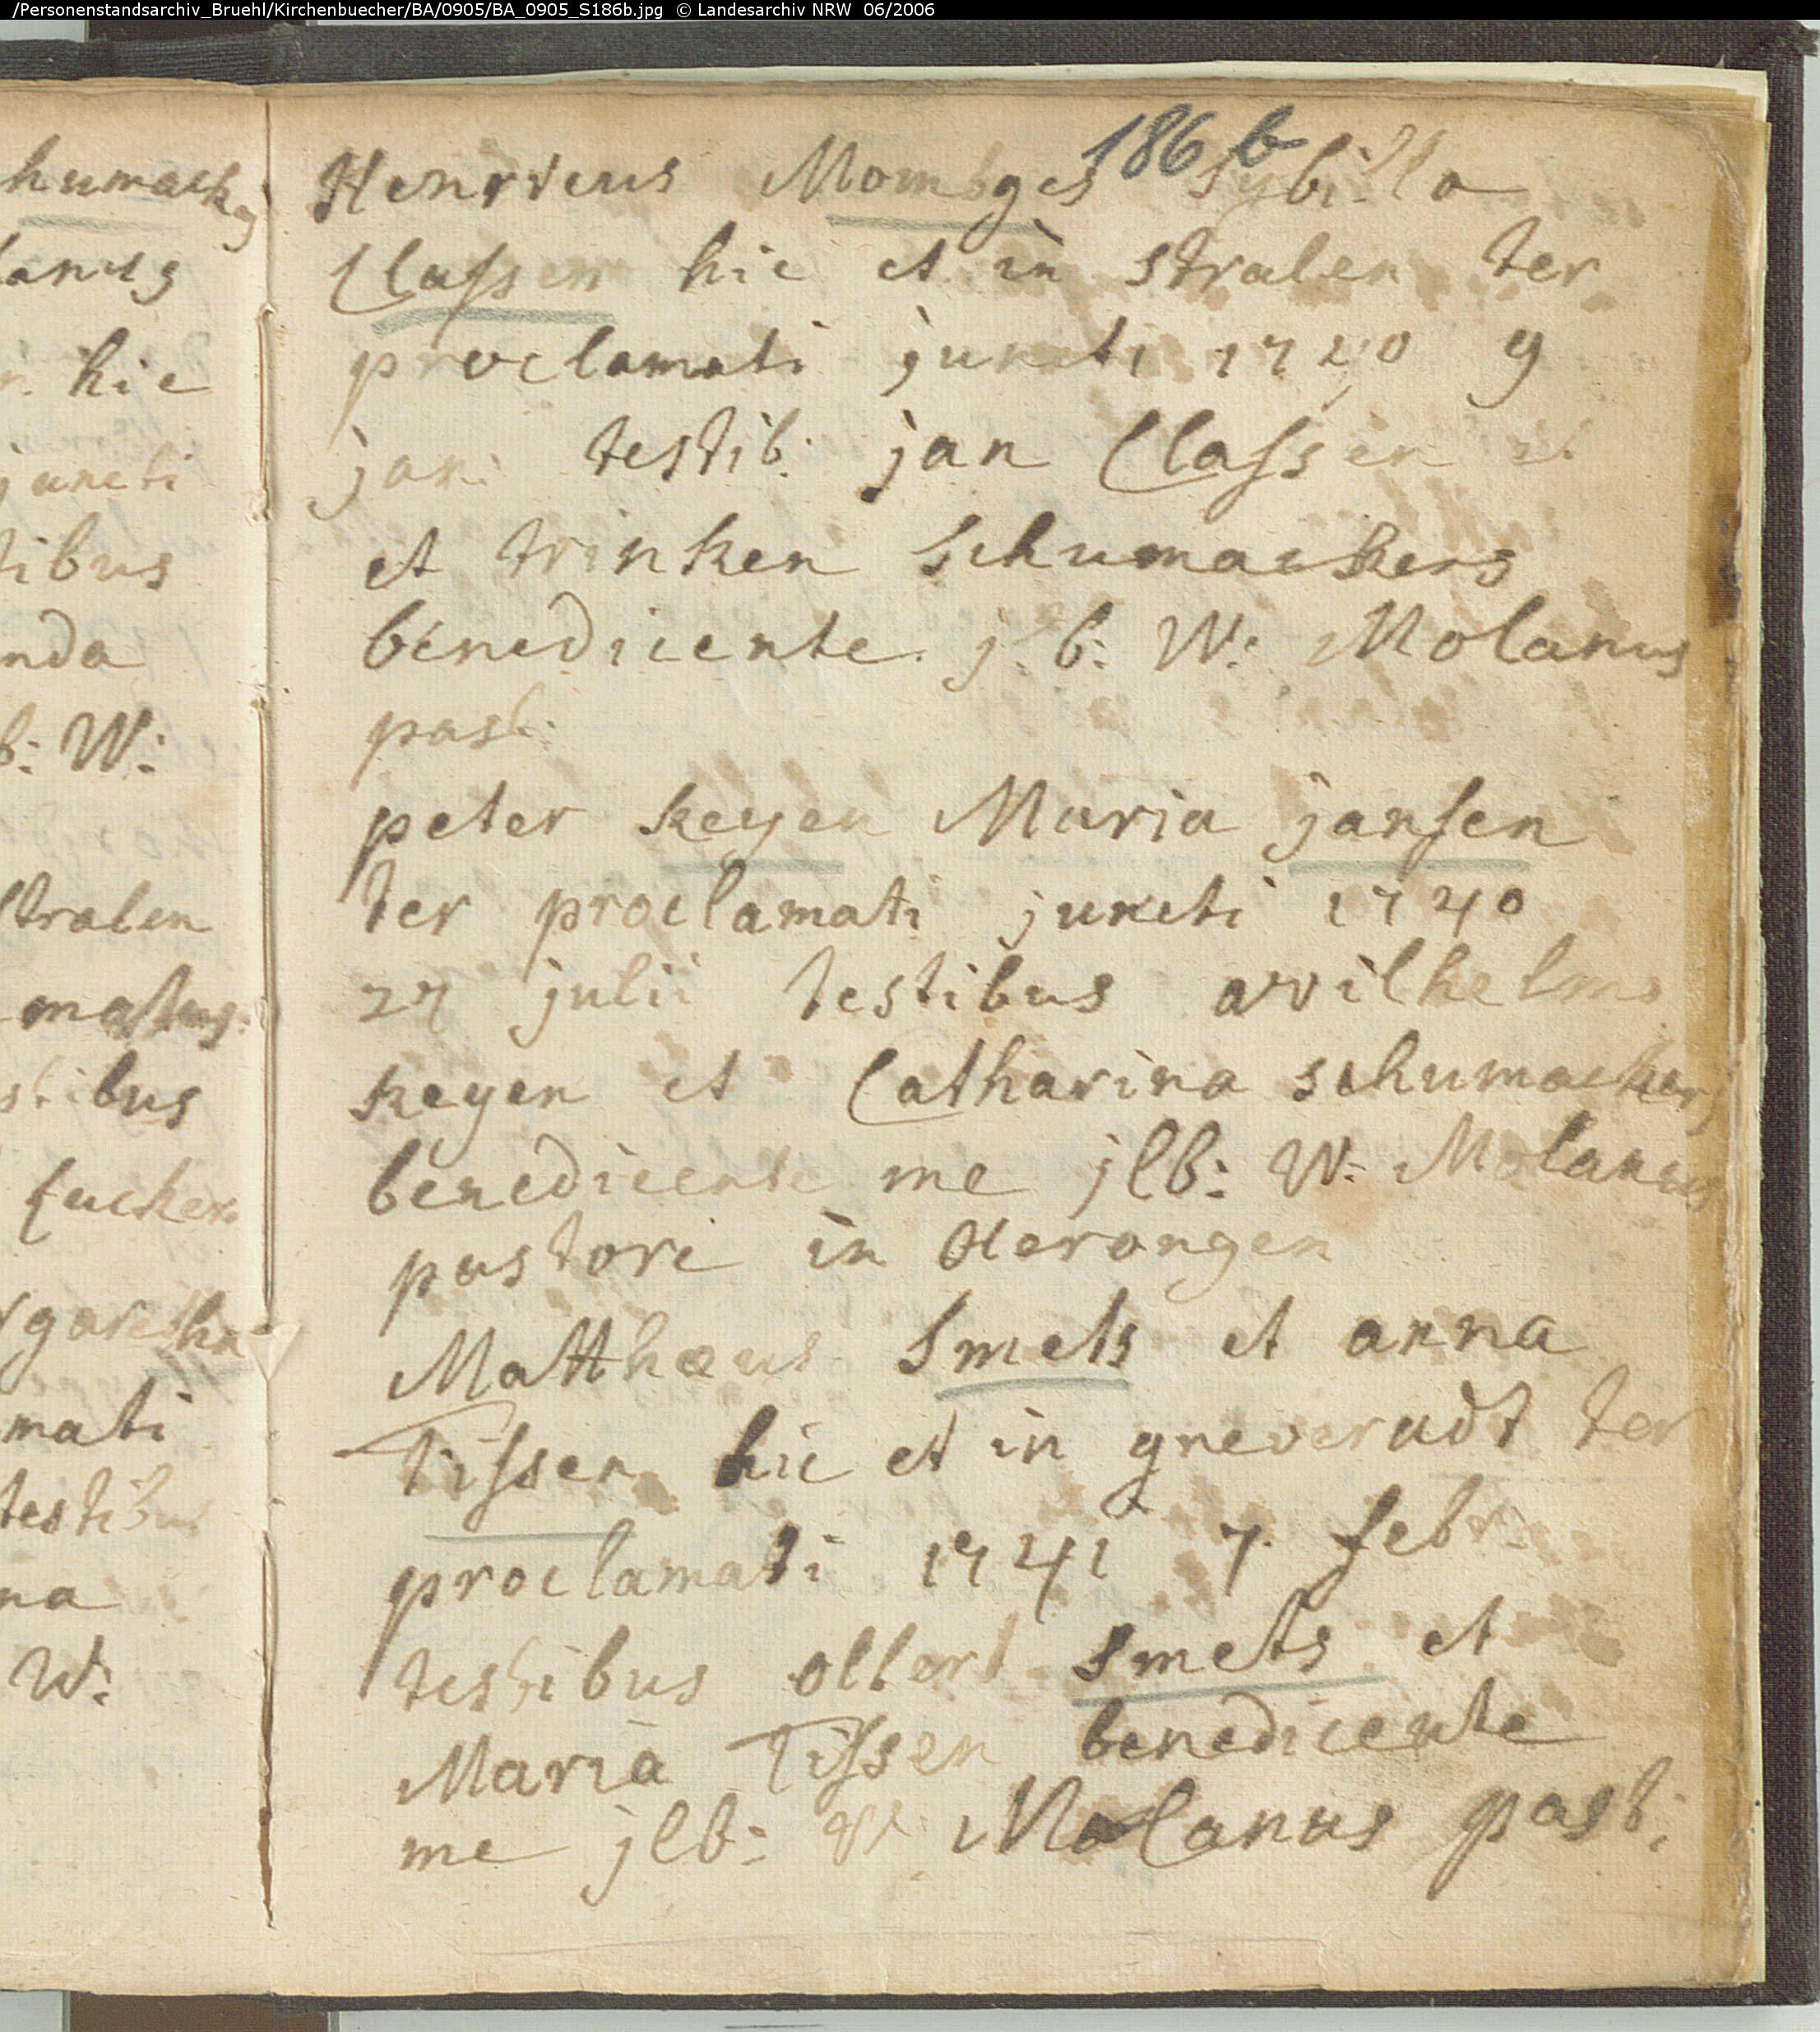 /Personenstandsarchiv_Bruehl/Kirchenbuecher/BA/0905/BA_0905_S186b.jpg © Landesarchiv NRW 06/2006
humackers
lanus
hie
juncti
tibus
nda
b: W:
stralen
matus.
stibus
garetha
mati
testibus
na
W:
186 b
Henricus Momsges Sybilla
Classen hic et in stralen ter
proclamati juncti 1740 9
jan: testib: jan Classen et
et trinken schumackers
benedicente j: b: W: Molanus
past:
peter keyen Maria jansen
ter proclamati juncti 1740
27 julii testibus wilhelmo
keyen et Catharina schumackers
benedicente me jlb: W: Molanus
pastore in Herongen
Matthaeus Smets et anna
Tissen hic et in greveradt ter
proclamati 1741 7. febr:
testibus olbert smets et
Maria Tissen benedicente
me jlb: W Molanus past: